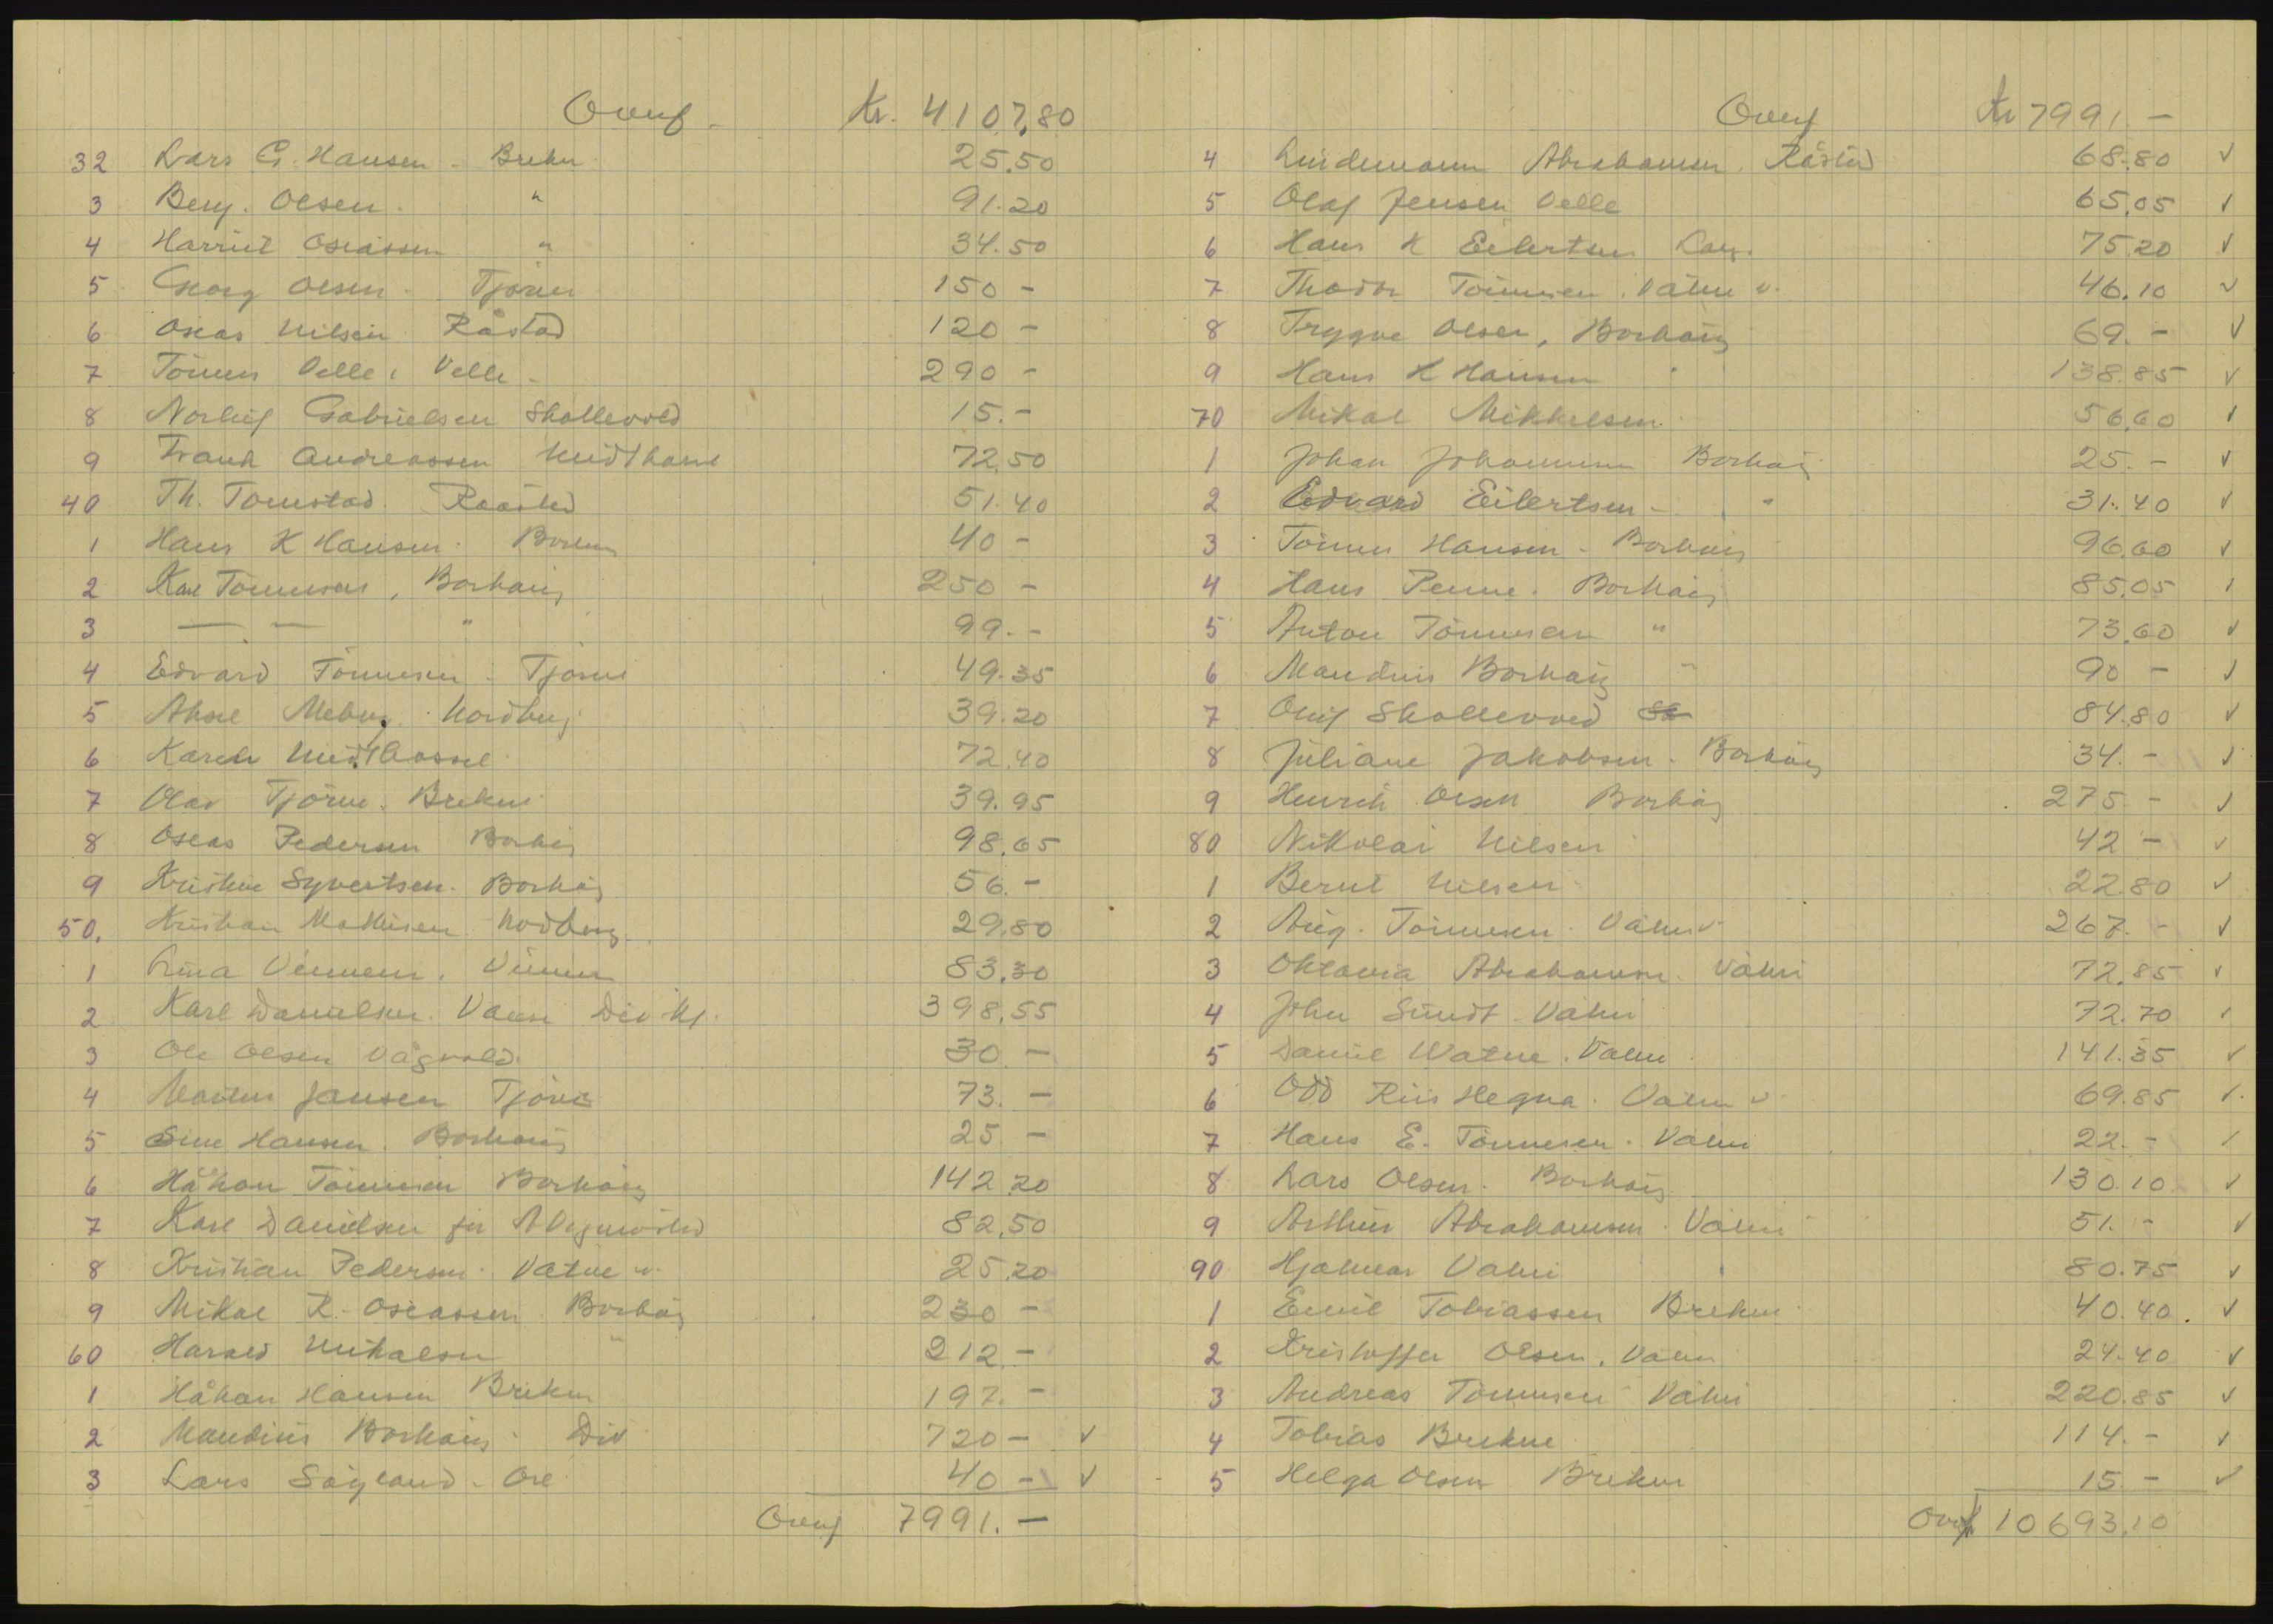 Overf. Kr. 4107,80
32 Lars G. Hansen - Brekne 25,50
3 Berg. Olsen. " 91.20
4 Harriet Oseassen " 34.50
5 Georg Olsen - Tjörve 150 -
6 Oseas Nilsen Råstad 120 -
7 Tönnes Velle, Velle - 290 -
8 Norleif Gabrielsen Skollevold 15.-
9 Frank Andreassen Midthassel 72,50
40 Th. Tomstad. Raastad 51.40
1 Hans K Hansen. Borhaug 40 -
2 Karl Tönnesen, Borhaug 250 -
3 — — " 99.-
4 Edvard Tönnesen - Tjörve 49.35
5 Aksel Meberg. Nordberg 39.20
6 Karen Midthassel 72.40
7 Olav Tjörve. Brekne 39.95
8 Oseas Pedersen Borhaug 98,65
9 Kristine Syvertsen. Borhaug 56.-
50. Kristian Mathisen Nordberg 29,80
1 Lina Vinnem. Vinnem 83,30
2 Karl Danielsen. Vanse Div 398,55
3 Ole Olsen Vågvold. 30 -
4 Martin Jansen Tjörve 73. -
5 Sine Hansen. Borhaug 25 -
6 Håkon Tönnesen Borhaug 142,20
7 Karl Danielsen for 82,50
8 Kristian Pedersen. Vatne v. 25,20
9 Mikal R. Oseassen Borhaug 230 -
60 Harald Mikalsen " 212.-
1 Håkon Hansen Brekne 197. -
2 Maudius Borhaug - Div 720 - ✓
3 Lars Sögland - Ore 40 - ✓
Overf 7991. —
Overf Kr 7991. —
4 Lindemann Abrahamsen. Råstad 68.80 ✓
5 Olaf Jensen Velle 65,05 ✓
6 Hans K Eilertsen 75,20 ✓
7 Theodor Tönnesen. Vatne v. 46.10 ✓
8 Trygve Olsen, Borhaug 69. - ✓
9 Hans H Hansen " 138.85 ✓
70 Mikal Mikkelsen. 56,60 ✓
1 Johan Johannesen Borhaug 25. - ✓
2 Edvard Eilertsen - " 31.40 ✓
3 Tönnes Hansen - Borhaug 96,60 ✓
4 Hans Penne. Borhaug 85.05 ✓
5 Anton Tönnesen " 73,60 ✓
6 Maudius Borhaug " 90 - ✓
7 Skollevold 84.80 ✓
8 Juliane Jakobsen. Borhaug 34. - ✓
9 Henrik Olsen Borhaug 275 - ✓
80 Nikolai Nilsen 42 - ✓
1 Bernt Nilsen 22.80 ✓
2 Aug. Tönnesen. Vatne v. 267. - ✓
3 Oktavia Abrahamsen. Vatne 72,85 ✓
4 John Sundt - Vatne 72.70 ✓
5 Daniel Watne. Vatne. 141.35 ✓
6 Odd Riis Hegna. Vatne v. 69.85 ✓
7 Hans E. Tönnesen. Vatne 22. - ✓
8 Lars Olsen. Borhaug 130.10 ✓
9 Arthur Abrahamsen. Vatne 51. - ✓
90 Hjalmar Vatne 80.75 ✓
1 Emil Tobiassen Brekne 40.40. ✓
2 Kristoffer Olsen. Vatne 24.40 ✓
3 Andreas Tönnesen Vatne 220.85 ✓
4 Tobias Brekne 114. - ✓
5 Helga Olsen Brekne 15. - ✓
Overf 10693,10